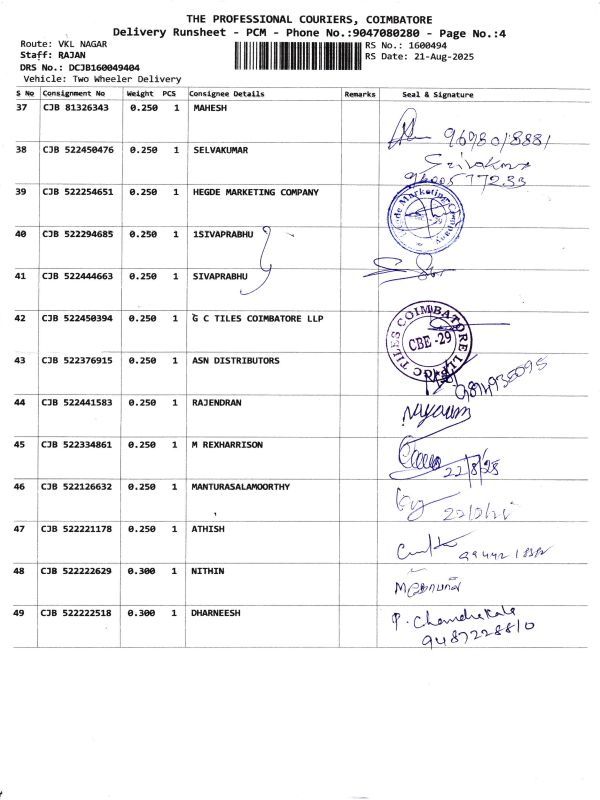 THE PROFESSIONAL COURIERS, COIMBATORE
Delivery Runsheet - PCM - Phone No.:9047080280 - Page No.:4
Route: VKL NAGAR
RS No.: 1600494
Staff: RAJAN
RS Date: 21-Aug-2025
DRS No.: DCJB160049404
Vehicle: Two Wheeler Delivery
S No Consignment No Weight PCS Consignee Details Remarks Seal & Signature
37 CJB 81326343 0.250 1 MAHESH
38 CJB 522450476 0.250 1 SELVAKUMAR
39 CJB 522254651 0.250 1 HEGDE MARKETING COMPANY
40 CJB 522294685 0.250 1 1SIVAPRABHU
41 CJB 522444663 0.250 1 SIVAPRABHU
42 CJB 522450394 0.250 1 G C TILES COIMBATORE LLP
G C TILES COIMBATORE LLP
CBE -29
43 CJB 522376915 0.250 1 ASN DISTRIBUTORS
44 CJB 522441583 0.250 1 RAJENDRAN
45 CJB 522334861 0.250 1 M REXHARRISON
22/8/25
46 CJB 522126632 0.250 1 MANTURASALAMOORTHY
47 CJB 522221178 0.250 1 ATHISH
48 CJB 522222629 0.300 1 NITHIN
49 CJB 522222518 0.300 1 DHARNEESH
P. Chandrekala
9487228810